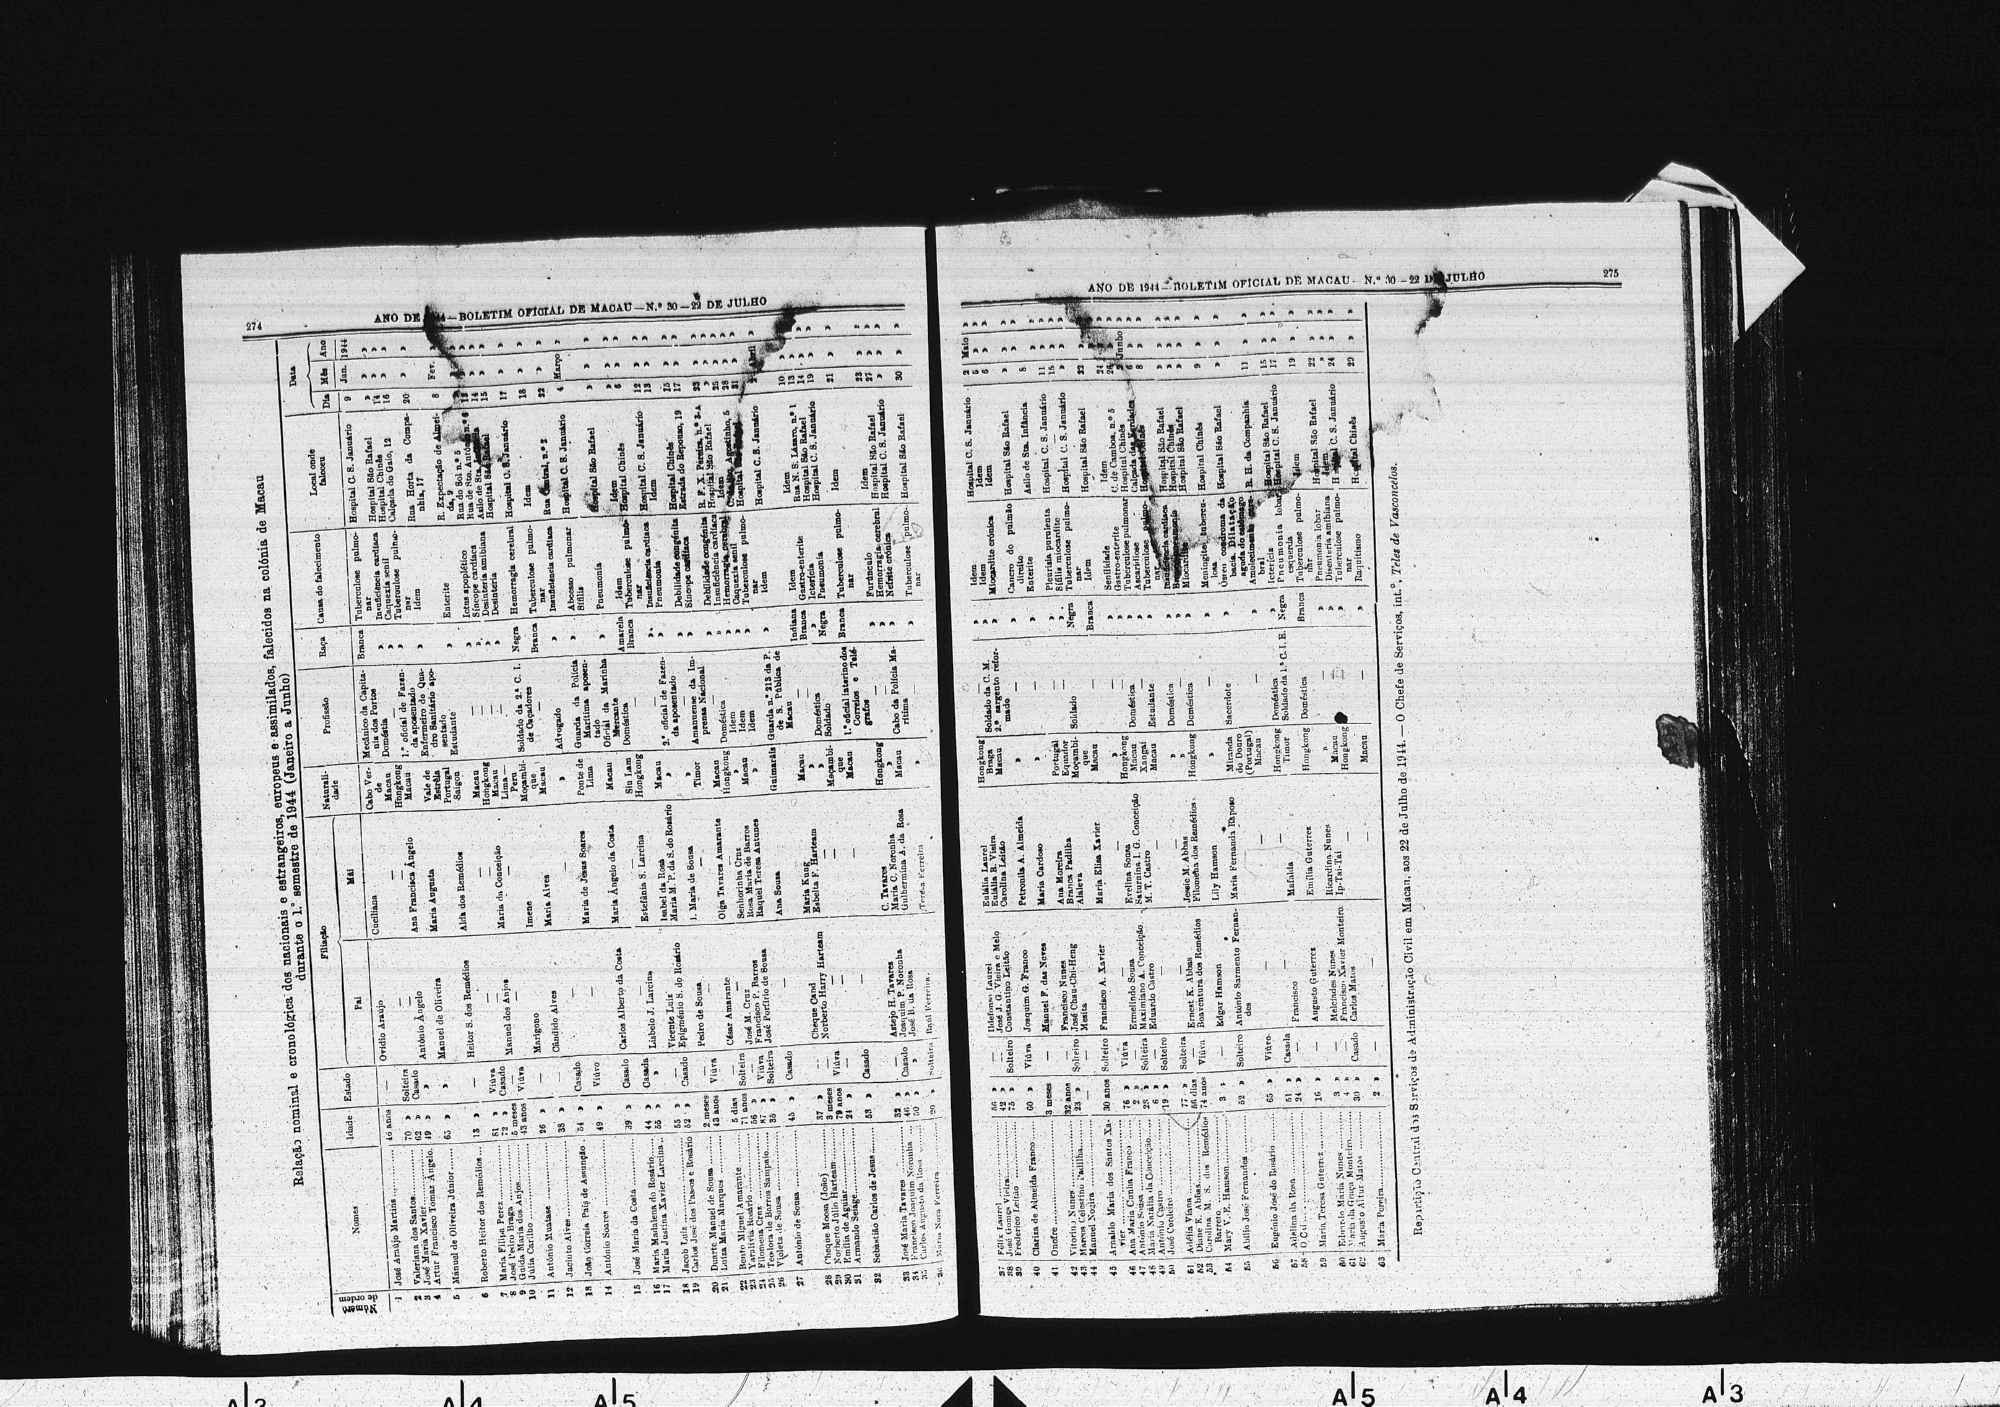 274
ANO DE 1944 — BOLETIM OFICIAL DE MACAU — N.º 30 — 22 DE JULHO
Relação nominal e cronológica dos nacionais e estrangeiros, europeus e assimilados, falecidos na colónia de Macau
durante o 1.º semestre de 1944 (Janeiro a Junho)
Número de ordem Nomes Idade Estado Filiação Pai Mãi Naturalidade Profissão Raça Causa do falecimento Local onde faleceu Data Dia Mês Ano
1 José Araújo Martins 46 anos — Ovídio Araújo Cueiliana Cabo Verde Mecânico da Capitania dos Portos Branca Tuberculose pulmonar Hospital C. S. Januário 9 Jan. 1944
2 Valeriana dos Santos 70 » Solteira — — Macau Doméstica » Insuficiência cardíaca Hospital São Rafael » » »
3 José Maria Xavier 62 » Casado — — Hongkong — » Caquexia senil Hospital Chinês 14 » »
4 Artur Francisco Tomaz Angelo 49 » » António Angelo Ana Francisca Angelo Macau 1.º oficial de Fazenda aposentado » Tuberculose pulmonar Calçada do Gaio, 12 16 » »
5 Manuel de Oliveira Júnior 65 » » Manuel de Oliveira Maria Augusta Vale de Estrêla Portugal Enfermeiro do Quadro Sanitário aposentado » Idem Rua Horta da Companhia, 17 20 » »
6 Roberto Heitor dos Remédios 13 » — Heitor S. dos Remédios Alda dos Remédios Saigon Estudante » Enterite R. Expectação de Almeida, 9 8 Fev. »
7 Maria Filipa Perez 81 » Viúva — — Macau — » Ictus apoplético Rua do Sol n.º 5
8 José Pedro Braga 72 » Casado — — Hongkong — » Síncope cardíaca Rua de Sto. António n.º
9 Guida Maria dos Anjos 5 meses — Manuel dos Anjos Maria da Conceição Macau — » Desinteria amibiana Asilo de Sta. 14
10 Julia Carilho 43 anos Viúva — — Lima — Peru — » Desinteria Hospital São Rafael 15
11 António Muatase 26 » — Marigono Imene Moçambique Soldado da 2.ª C. I. de Caçadores Negra Hemorragia cerebral Hospital C. S. Januário 17 » »
12 Jacinto Alves 38 » — Cândido Alves Maria Alves Macau — Branca Tuberculose pulmonar Idem 18 » »
13 João Correia Pais de Assunção 54 » Casado — — » Advogado » Insuficiência cardíaca Rua Central, n.º 2 22 » »
14 António Soares 49 » Viúvo — Maria de Jesus Soares Ponte de Lima Guarda da Polícia Marítima aposentado » Abcesso pulmonar Sífilis Hospital C. S. Januário 4 Março »
15 José Maria da Costa 39 » Casado Carlos Alberto da Costa Maria Angelo da Costa Macau Oficial da Marinha Mercante » Pneumonia Hospital São Rafael » » »
16 Maria Madalena do Rosário 44 » Casada — — Siu Lam Doméstica Amarela Idem Idem » » »
17 Maria Justina Xavier Larcina 55 » » Lisbelo J. Larcina Estefânia S. Larcina Hongkong — Branca Tuberculose pulmonar Hospital Chinês 6 » »
18 Jacob Luiz 55 » Casado Vicente Luiz Isabel da Rosa Macau — » Insuficiência cardíaca Hospital C. S. Januário 12 » »
19 Carlos José dos Passos e Rosário 52 » » Epigménio S. do Rosário Maria M. P. da S. do Rosário » 2.º oficial de Fazenda aposentado » Pneumonia Idem 13 » »
20 Duarte Manuel de Sousa 2 meses — Pedro de Sousa I. Maria de Sousa Timor — » Debilidade congénita Hospital Chinês 15 » »
21 Luiza Maria Marques 43 anos Viúva — — » Síncope cardíaca Estrada do Repouso, 19 17 » »
22 Bento Miguel Amarante 5 dias — César Amarante Olga Tavares Amarante Macau — » Debilidade congénita R. F. X. Pereira, n.º 3-A 23 » »
23 Yaralivia Rosário 71 anos Solteira — — Hongkong Doméstica » Insuficiência cardíaca Hospital São Rafael » » »
24 Filomena Cruz 56 » — José M. Cruz Senhorinha Cruz » Idem » Hemorragia cerebral Idem 25 » »
25 Teodora de Barros Sampaio 87 » Viúva Francisco P. Barros Rosa Maria de Barros Macau Idem » Caquexia senil 28 » »
26 Violeta de Sousa 35 » Solteira José Porfírio de Sousa Raquel Teresa Antunes » Idem » Tuberculose pulmonar 31 » »
27 António de Sousa 45 » Casado — Ana Sousa Guimarãis Guarda n.º 213 da P. de S. Pública de Macau » Idem Hospital C. S. Januário Abril »
28 Cheque Moosa (João) 37 » — Cheque Cand Maria Kung Macau — Indiana Idem Idem 10 » »
29 Norberto Júlio Harteam 3 meses — Norberto Harry Harteam Esbelta F. Harteam » — Branca Gastro-enterite Rua N. S. Lázaro, n.º 1 13 » »
30 Emília de Aguiar 79 anos Viúva — — » Doméstica » Icterícia Hospital São Rafael 14 » »
31 Armando Seiage 24 » — — — Moçambique Soldado Negra Pneumonia Hospital C. S. Januário 19 » »
32 Sebastião Carlos de Jesus 53 » Casado — — Macau 1.º oficial interino dos Correios e Telégrafos Branca Tuberculose pulmonar Idem 21 » »
33 José Maria Tavares 32 » — Astejo H. Tavares C. Tavares Hongkong — » Furúnculo Idem 23 » »
34 Francisco Joaquim Noronha 46 » Casado Joaquim P. Noronha Maria C. Noronha » — » Hemorragia cerebral Hospital São Rafael 27 » »
35 Carlos Augusto da Rosa 50 » » José B. da Rosa Guilhermina A. da Rosa Macau Cabo da Polícia Marítima » Nefrite crónica Hospital C. S. Januário » » »
36 Maria Nora Ferreira 20 » Solteira Raúl Ferreira Teresa Ferreira » — » Tuberculose pulmonar Hospital São Rafael 30 » »
ANO DE 1944 — BOLETIM OFICIAL DE MACAU — N.º 30 — 22 DE JULHO
275
37 Félix Laurel 56 » — Ildefonso Laurel Eulália Laurel Hongkong — » Idem Hospital C. S. Januário 2 Maio »
38 José Gomes Vieira 42 » — José J. G. Vieira e Melo Eulália R. Vieira Braga Soldado da C. M. » Idem Idem 5 » »
39 Frederico Leitão 75 » Solteiro Constantino Leitão Carolina Leitão Macau 2.º sargento reformado » Miocardite crónica Idem 6 » »
40 Clarisa de Almeida Franco 60 » Viúva Joaquim G. Franco Petronila A. Almeida » — » Cancro do pulmão direito Hospital São Rafael » » »
41 Onofre 3 meses — Manuel F. das Neves Maria Cardoso » — » Enterite Asilo de Sta. Infância 8 » »
42 Vitorino Nunes 32 anos Solteiro Francisco Nunes Ana Moreira Portugal — » Pleurisia purulenta Hospital C. S. Januário 11 » »
43 Marcos Celestino Padilha 23 » — José Chau-Chi-Heng Branca Padilha Equador — » Sífilis miocardite Hospital São Rafael 15 » »
44 Manuel Nogira — Solteiro Masita Aialeva Moçambique Soldado Negra Tuberculose pulmonar Hospital C. S. Januário » » »
45 Arnaldo Maria dos Santos Xavier 30 anos Solteiro Francisco A. Xavier Maria Elisa Xavier Macau — Branca Idem Hospital São Rafael 22 » »
46 Ana Maria Cunha Franco 76 » Viúva — — » — » Senilidade Idem 24 » »
47 António Sousa 2 » — Ermelindo Sousa Evelina Sousa Hongkong — » Gastro-enterite C. de Camboa, n.º 5
48 Maria Natália da Conceição 28 » Solteira Maximiano A. Conceição Saturnina I. G. Conceição Macau Doméstica » Tuberculose pulmonar Hospital Chinês Junho »
49 António Castro 6 » — Eduardo Castro M. T. Castro Xangai — » Ascaridiose Calçada das Verdades 6 » »
50 José Cordeiro 19 » Solteiro — — Macau Estudante » Tuberculose pulmonar Hospital Chinês 8 » »
51 Adélia Viana 77 » Solteira — — » Doméstica » Insuficiência cardíaca Hospital São Rafael
52 Diane E. Abbas 56 dias — Ernest K. Abbas Jessie M. Abbas » — » Hospital Chinês
53 Carolina M. S. dos Remédios Barreto 74 anos Viúva Boaventura dos Remédios Filomena dos Remédios Hongkong Doméstica » Miocardite Hospital São Rafael
54 Mary V. E. Hamson 3 » — Edgar Hamson Lily Hamson » — » Meningite tuberculosa Hospital Chinês 9 » »
55 Abílio José Fernandes 52 » Solteiro António Sarmento Fernandes Maria Fernanda Raposo Miranda do Douro (Portugal) Sacerdote » Hospital São Rafael » » »
56 Eugénio José do Rosário 65 » Viúvo — — Macau — » R. H. da Companhia 11 » »
57 Adelina da Rosa 51 » Casada — — Hongkong Doméstica » Icterícia Hospital São Rafael 15 » »
58 O Cai 24 » — Francisco Mafalda Timor Soldado da 1.ª C. I. E. Negra Pneumonia lobar esquerda Hospital C. S. Januário 17 » »
59 Maria Teresa Guterrez 16 » — Augusto Guterrez Emília Guterrez Hongkong Doméstica Branca Tuberculose pulmonar Idem 19 » »
60 Eduardo Maria Nunes 3 » — Melcíades Nunes Ricardina Nunes » — » Pneumonia lobar Hospital São Rafael 22 » »
61 Maria da Graça Monteiro 4 » — Francisco Xavier Monteiro Ip-Tai-Tai Macau — » Disenteria amibiana Idem » » »
62 Augusto Artur Matos 30 » Casado Carlos Matos — Hongkong — » Tuberculose pulmonar Hospital C. S. Januário 24 » »
63 Maria Pereira 2 » — — — Macau — » Raquitismo Hospital Chinês 29 » »
Repartição Central dos Serviços de Administração Civil em Macau, aos 22 de Julho de 1944. — O Chefe de Serviços, int.º, Teles de Vasconcelos.
A 4
A 5
A 5
A 4
A 3